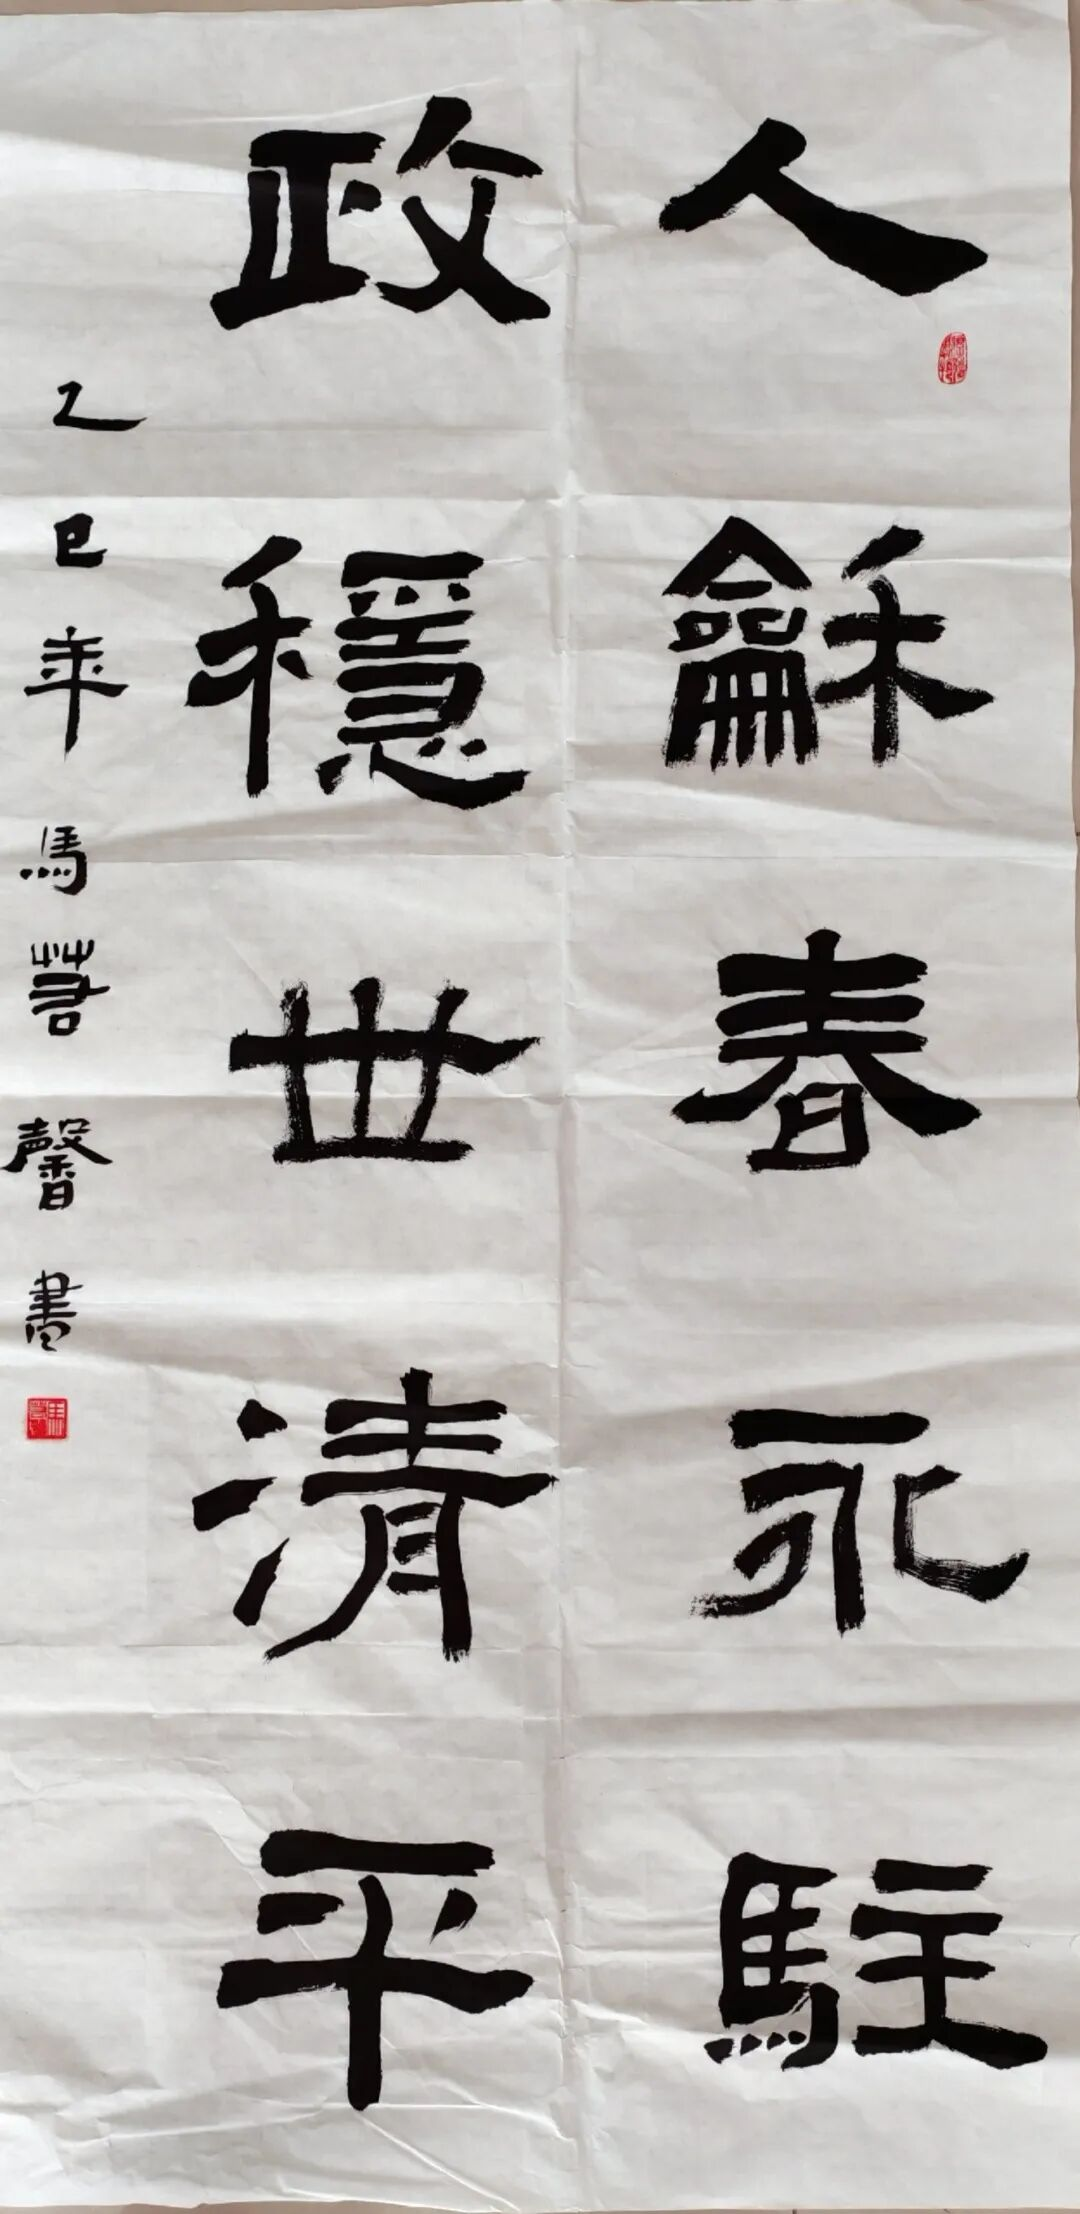 人龢春永駐
政穩世清平
乙巳年馬萻馨書